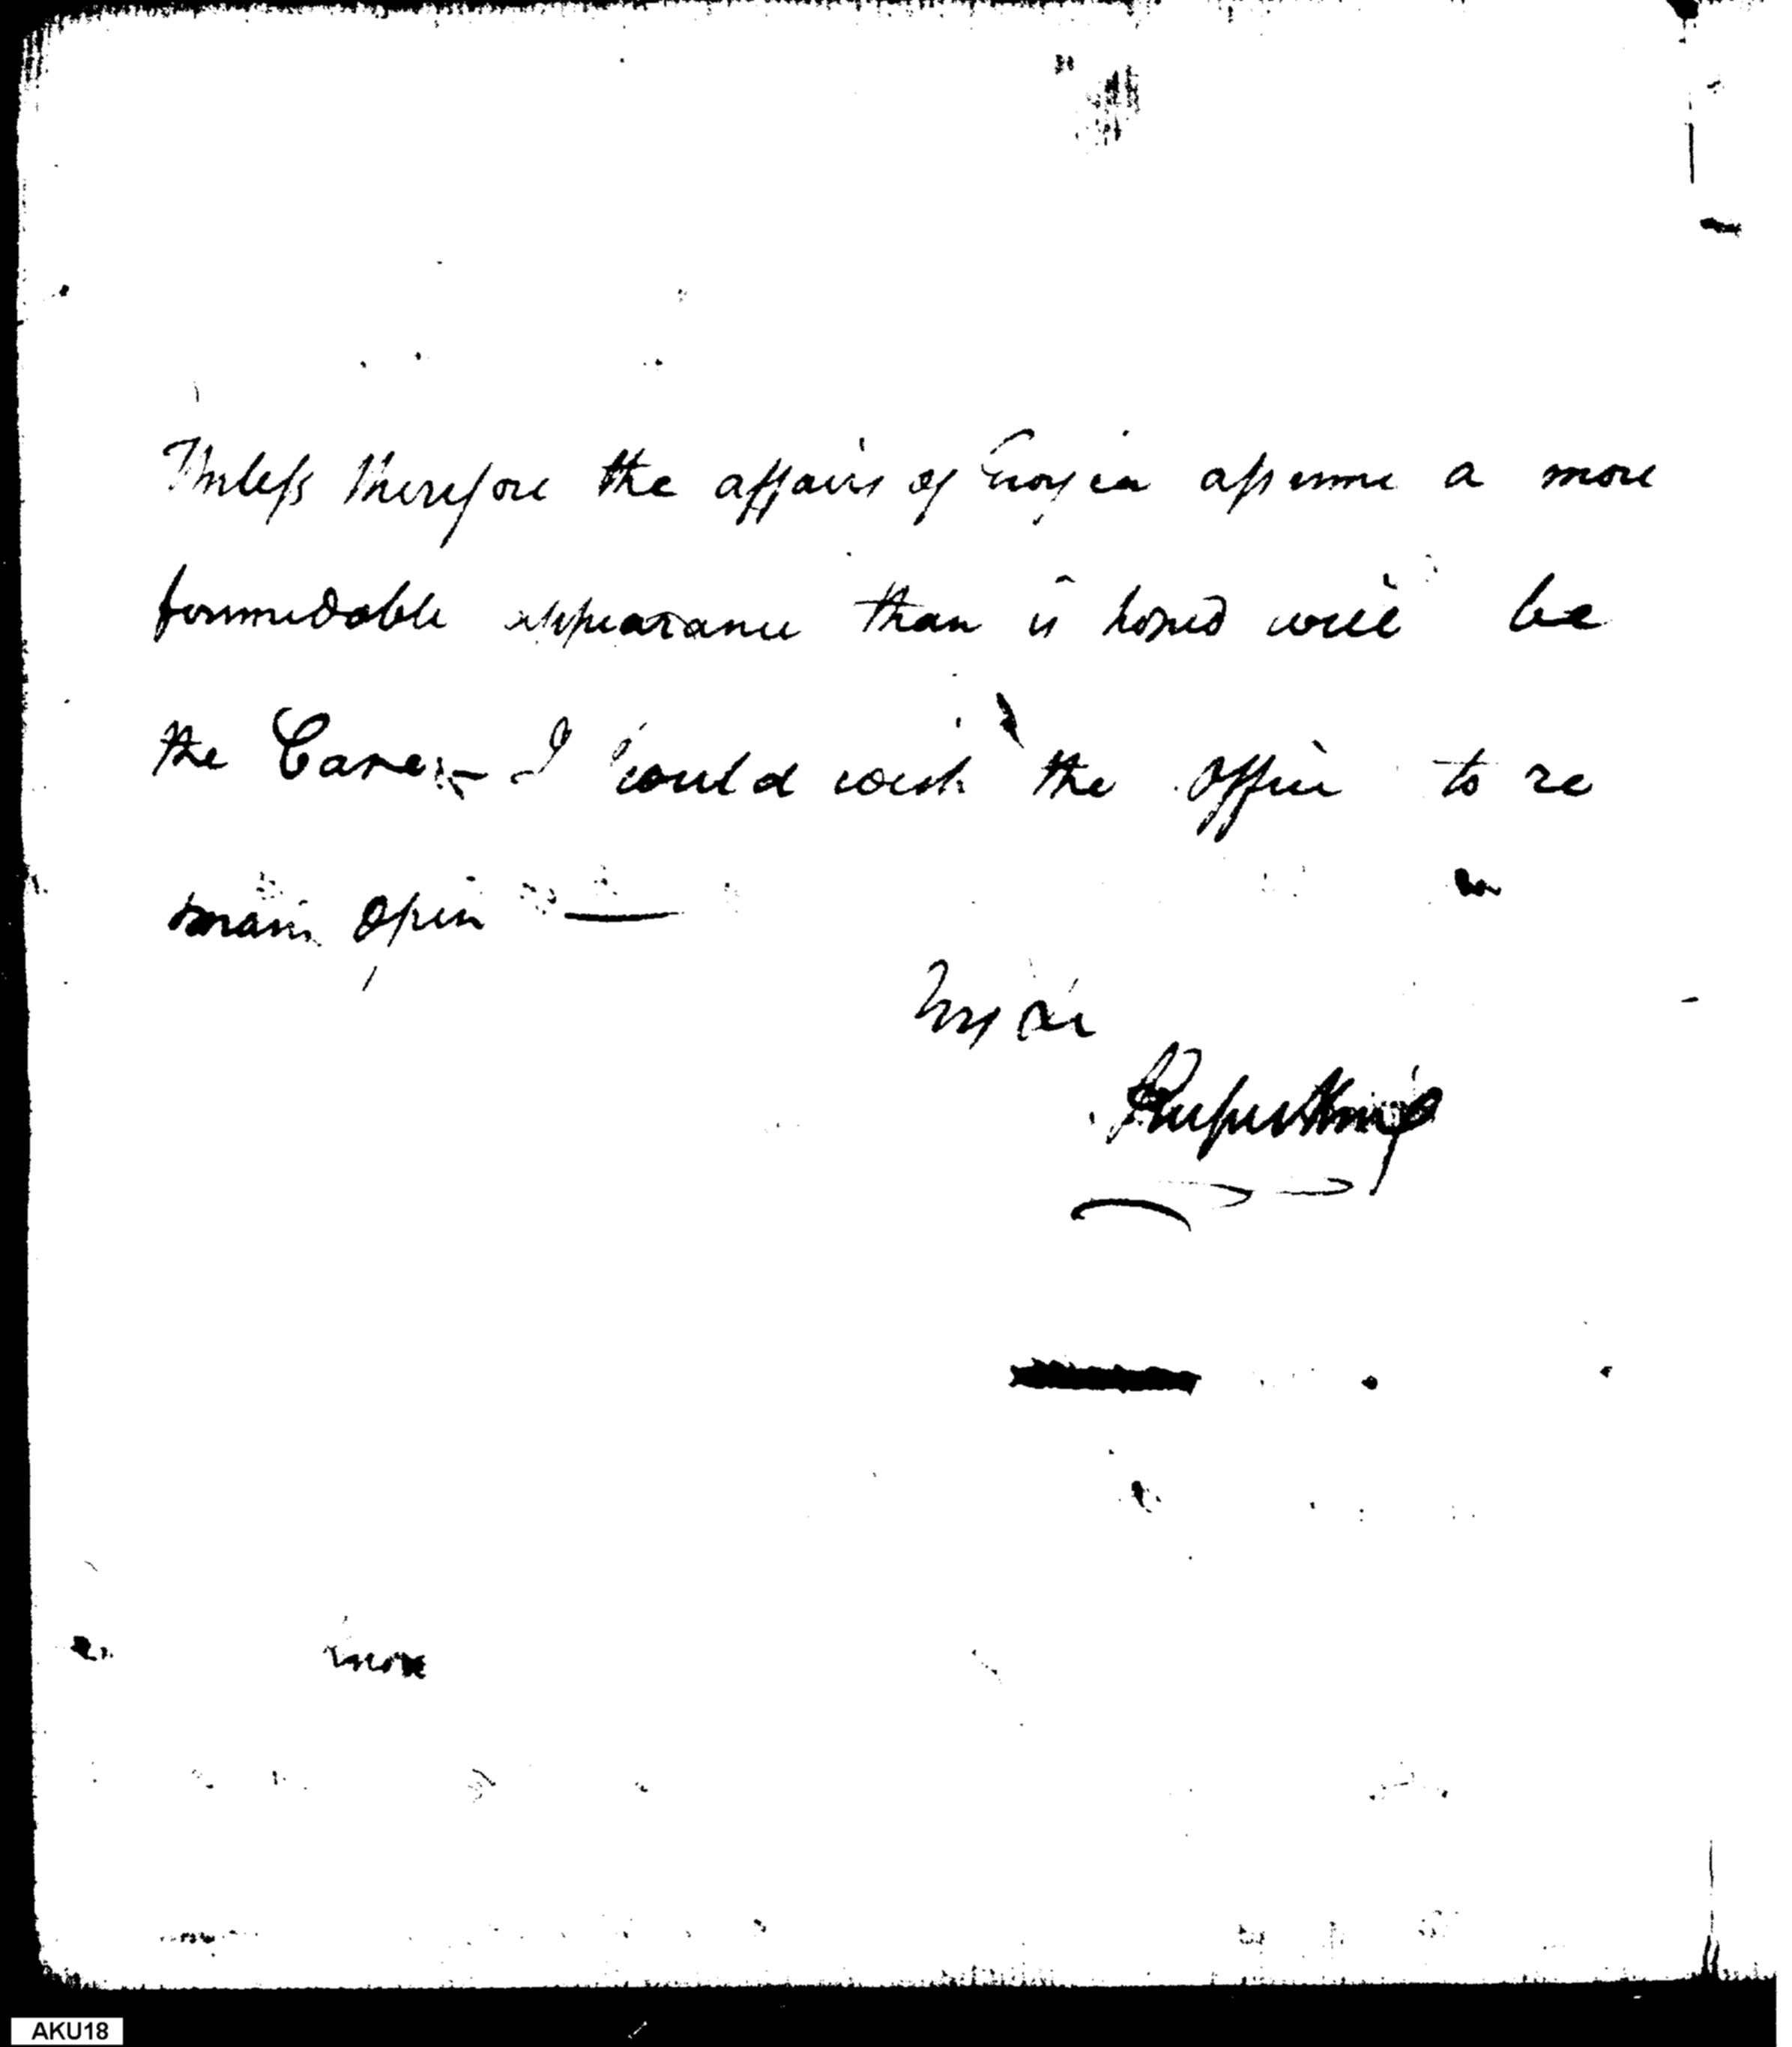 Unless therefore the affairs of Georgia assume a more
formidable appearance than is hoped will be
the Case — I could wish the office to re
main open —
Rufus King
AKU18